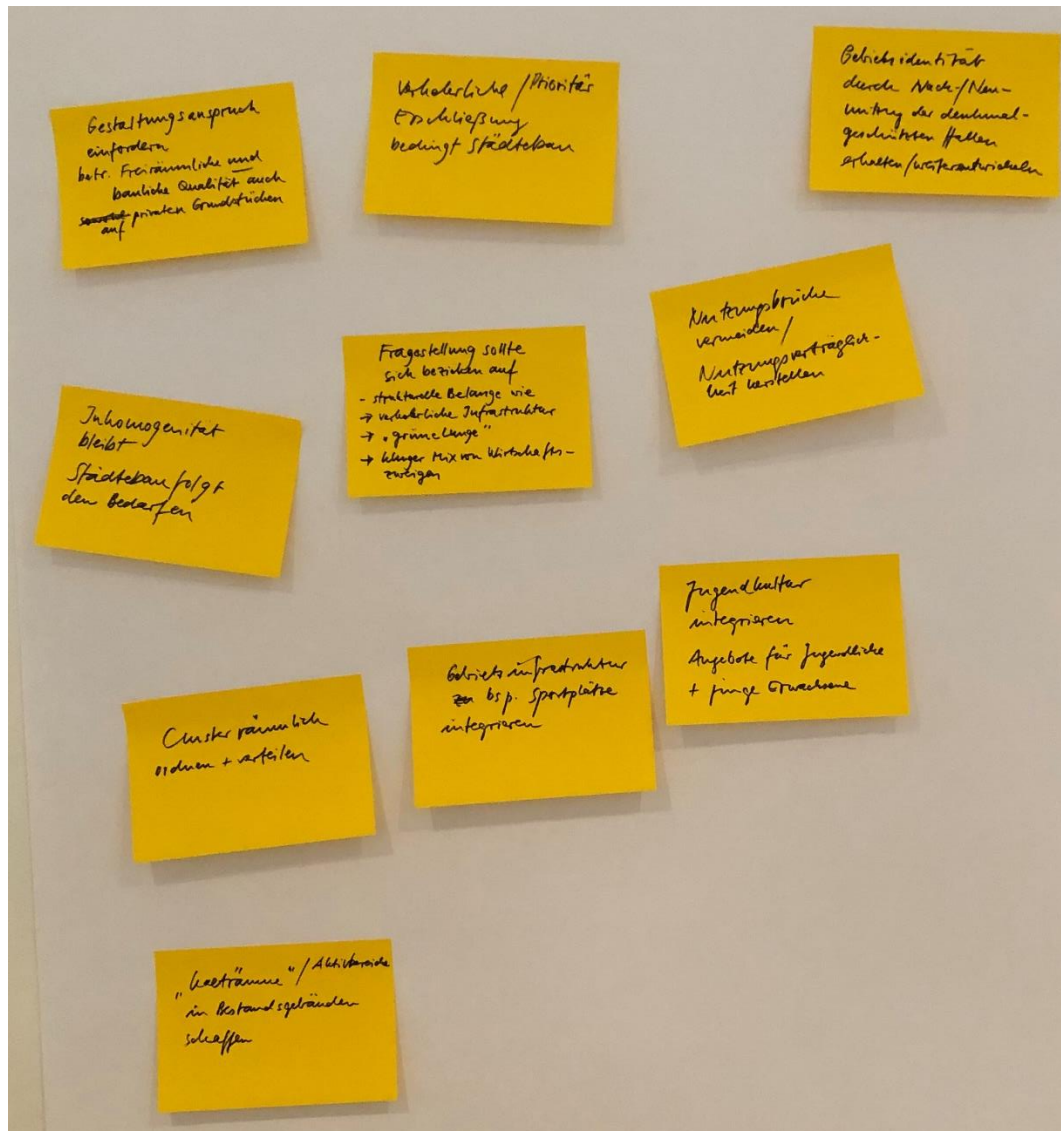 Gestaltungsanspruch
einfordern
betr. Freiräumliche und
bauliche Qualität auch
auf privaten Grundstücken
Verkehrliche / Prioritär
Erschließung
bedingt Städtebau
Gebietsidentität
durch Nach-/Neu-
nutzung der denkmal-
geschützten Hallen
erhalten/weiterentwickeln
Inhomogenität
bleibt
Städtebau folgt
den Bedarfen
Fragestellung sollte
sich beziehen auf
- strukturelle Belange wie
→ verkehrliche Infrastruktur
→ „grüne Lunge"
→ kluger Mix von Wirtschafts-
zweigen
Nutzungsbrüche
vermeiden /
Nutzungsverträglich-
keit herstellen
Cluster räumlich
ordnen + verteilen
Gebietsinfrastruktur
bsp. Sportplätze
integrieren
Jugendkultur
integrieren
Angebote für Jugendliche
+ junge Erwachsene
/ Aktivbereiche
in Bestandsgebäuden
schaffen